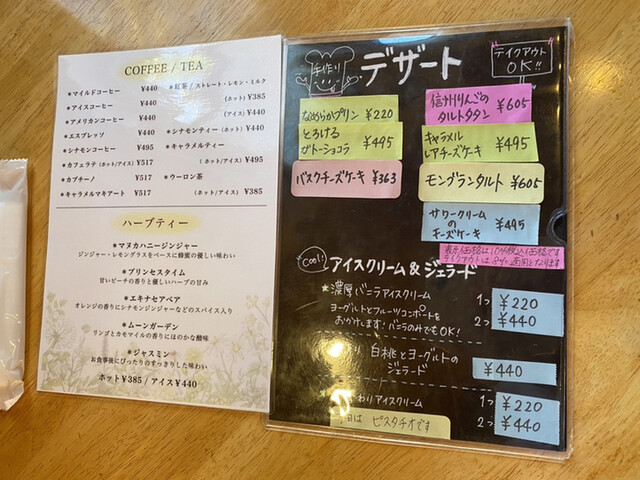 COFFEE / TEA
*マイルドコーヒー ¥440
*アイスコーヒー ¥440
*アメリカンコーヒー ¥440
*エスプレッソ ¥440
*シナモンコーヒー ¥495
*カフェラテ(ホット/アイス) ¥517
*カプチーノ ¥517
*キャラメルマキアート ¥517
*紅茶/ストレート・レモン・ミルク
(ホット) ¥385
(アイス) ¥440
*シナモンティー(ホット) ¥440
*キャラメルティー
(ホット/アイス) ¥495
*ウーロン茶
(ホット/アイス) ¥385
ハーブティー
*マヌカハニージンジャー
ジンジャー・レモングラスをベースに蜂蜜の優しい味わい
*プリンセスタイム
甘いピーチの香りと優しいハーブの甘み
*エキナセアベア
オレンジの香りにシナモンジンジャーなどのスパイス入り
*ムーンガーデン
リンゴとカモマイルの香りにほのかな酸味
*ジャスミン
お食事後にぴったりのすっきりした味わい
ホット¥385 / アイス¥440
手作り
デザート
テイクアウト
OK!!
なめらかプリン ¥220
とろける
ガトーショコラ ¥495
バスクチーズケーキ ¥363
信州りんごの
タルトタタン ¥605
キャラメル
レアチーズケーキ ¥495
モンブランタルト ¥605
サワークリーム
の
チーズケーキ ¥495
Cool!
アイスクリーム&ジェラード
★濃厚バニラアイスクリーム 1つ ¥220
ヨーグルトとフルーツコンポートを 2つ ¥440
おかけします!バニラのみでもOK!
白桃とヨーグルトの
ジェラード ¥440
わりアイスクリーム 1つ ¥220
日は ピスタチオです 2つ ¥440